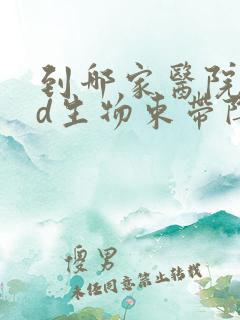 到那家醫院
d生物束帶陰
傻男
未经同意禁止转载